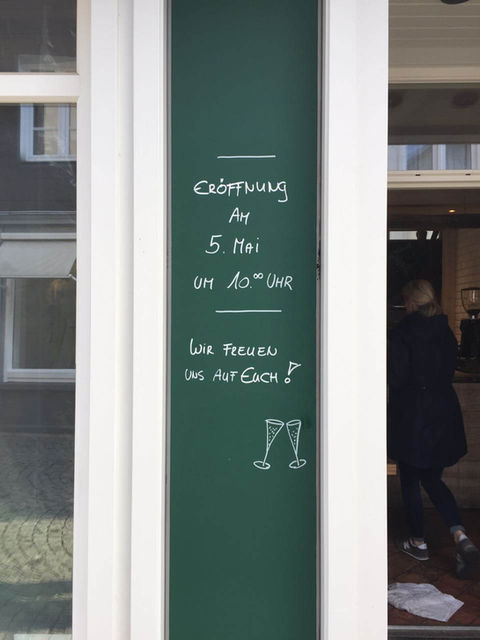 ERÖFFNUNG
AM
5. MAI
UM 10.⁰⁰ UHR
WIR FREUEN
UNS AUF EUCH!